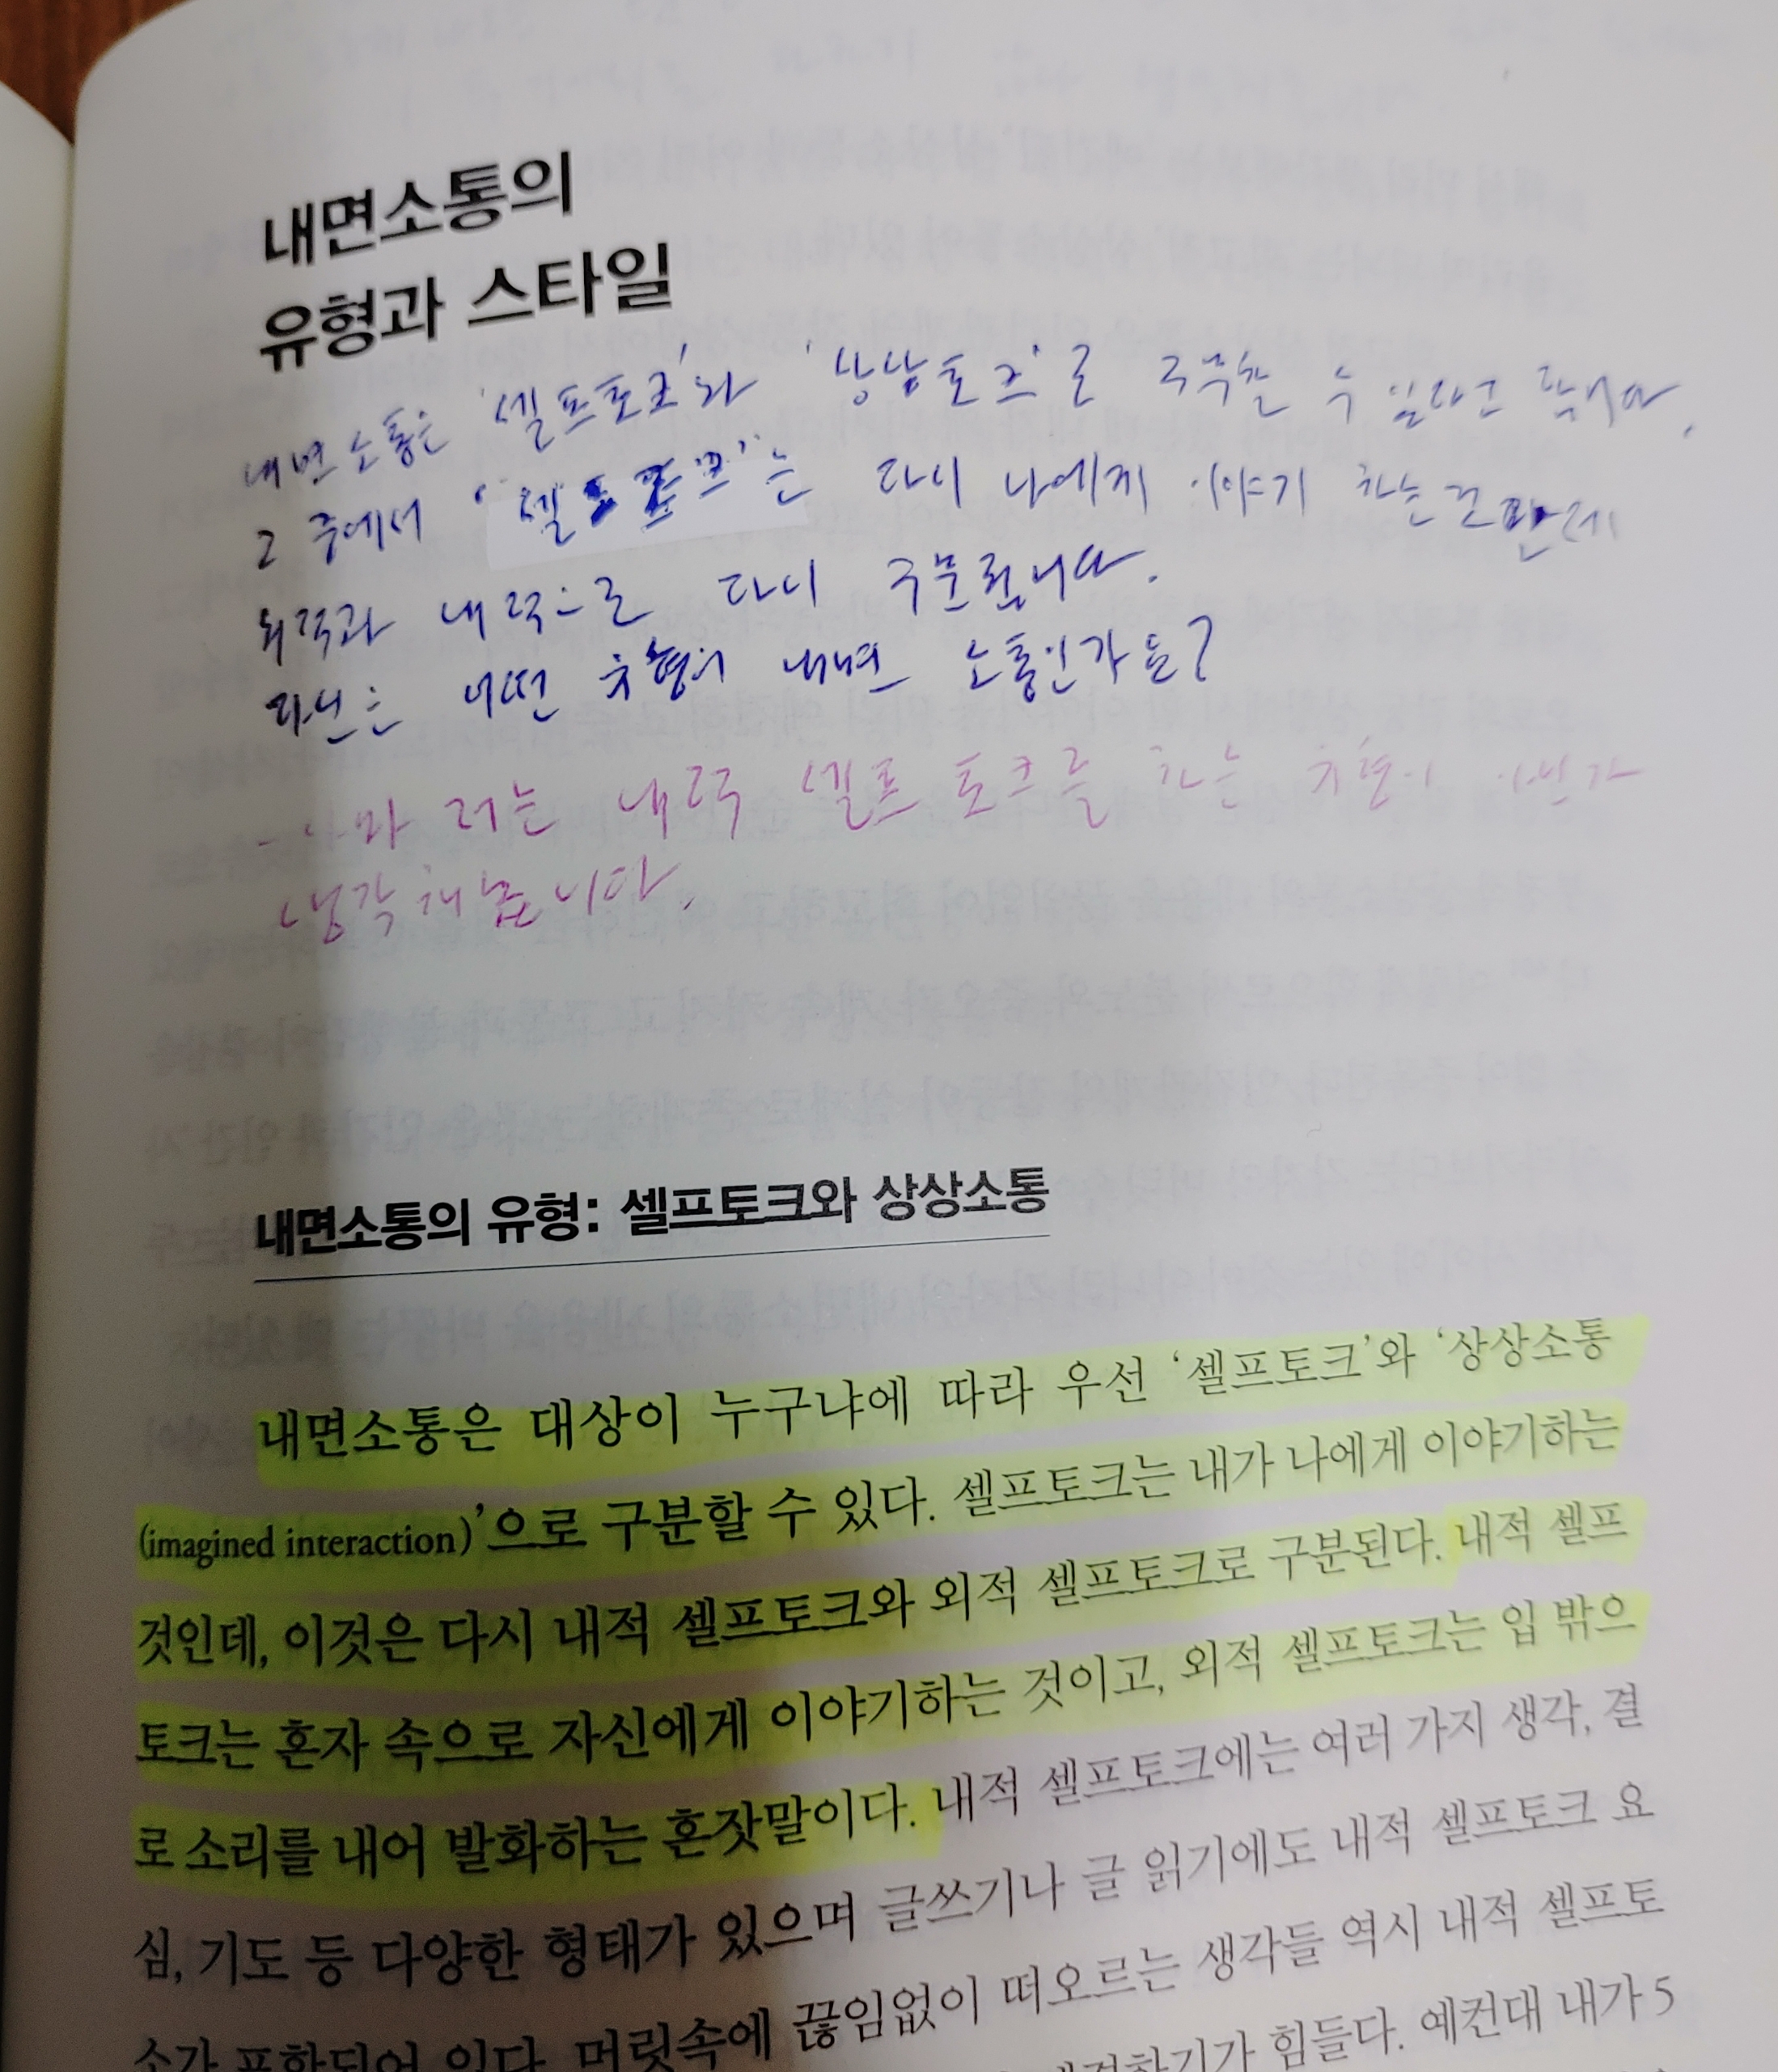 내면소통의
유형과 스타일
내면소통은 '셀프토크'와 '상상토크'로 구분할 수 있다고 합니다.
그 중에서 '셀프토크'는 다시 나에게 이야기 하는건데
외적과 내적으로 다시 구분됩니다.
당신은 어떤 유형의 내면 소통인가요?
- 아마 저는 내적 셀프 토크를 하는 유형이 아닌가
생각해봅니다.
내면소통의 유형: 셀프토크와 상상소통
내면소통은 대상이 누구냐에 따라 우선 ‘셀프토크’와 ‘상상소통
(imagined interaction)’으로 구분할 수 있다. 셀프토크는 내가 나에게 이야기하는
것인데, 이것은 다시 내적 셀프토크와 외적 셀프토크로 구분된다. 내적 셀프
토크는 혼자 속으로 자신에게 이야기하는 것이고, 외적 셀프토크는 입 밖으
로 소리를 내어 발화하는 혼잣말이다. 내적 셀프토크에는 여러 가지 생각, 결
심, 기도 등 다양한 형태가 있으며 글쓰기나 글 읽기에도 내적 셀프토크 요
소가 포함되어 있다. 머릿속에 끊임없이 떠오르는 생각들 역시 내적 셀프토
힘들다. 예컨대 내가 5